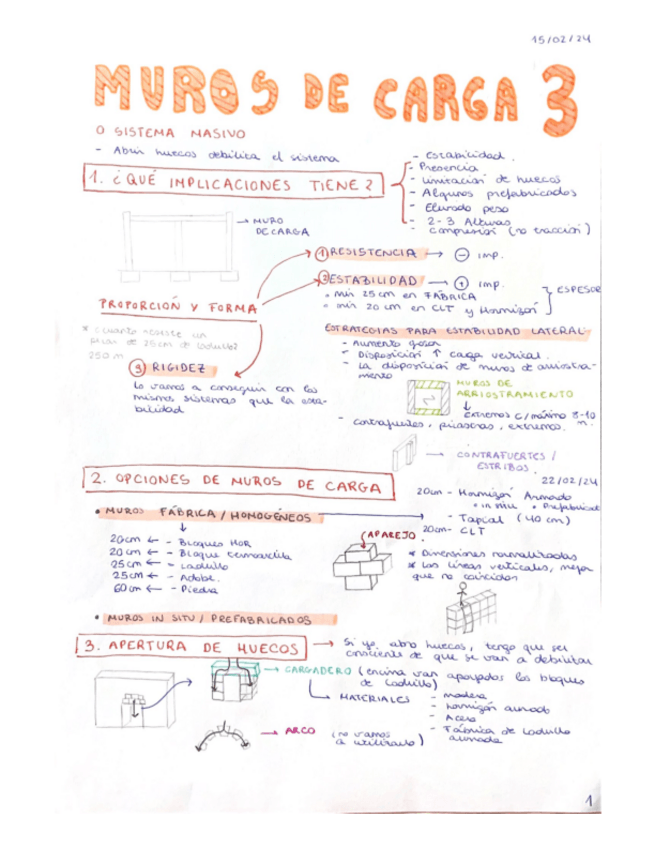 15/02/24
MUROS DE CARGA 3
O SISTEMA MASIVO
- Abrir huecos debilita el sistema
1. ¿QUÉ IMPLICACIONES TIENE?
- Estabilidad.
- Presencia
- Limitación de huecos
- Algunos prefabricados
- Elevado peso
- 2-3 Alturas
- Compresión (no tracción)
→ MURO DE CARGA
PROPORCIÓN Y FORMA
* Cuanto resiste un
pilar de 25cm de ladrillo?
250 m
1 RESISTENCIA → - imp.
2 ESTABILIDAD → + imp.
• min 25 cm en FÁBRICA
• min 20 cm en CLT y Hormigón
ESPESOR
ESTRATEGIAS PARA ESTABILIDAD LATERAL
- Aumento grosor
- Disposición ↑ carga vertical.
- La disposición de muros de arriostra-
miento
MUROS DE
ARRIOSTRAMIENTO
↓
extremos c/máximo 8-10
m.
- Contrafuertes, pilastras, extremos.
→ CONTRAFUERTES /
ESTRIBOS
3 RIGIDEZ
Lo vamos a conseguir con los
mismos sistemas que la esta-
bilidad
2. OPCIONES DE MUROS DE CARGA
22/02/24
• MUROS FÁBRICA / HOMOGÉNEOS
↓
20cm ← - Bloques HOR
20cm ← - Bloque termoarcilla
25cm ← - Ladrillo
25cm ← - Adobe.
60cm ← - Piedra
20cm - Hormigón Armado
• in situ • Prefabricado
- Tapial (40 cm)
20cm - CLT
APAREJO
* Dimensiones normalizadas
* Las líneas verticales, mejor
que no coincidan
• MUROS IN SITU / PREFABRICADOS
3. APERTURA DE HUECOS → Si yo abro huecos, tengo que ser
consciente de que se van a debilitar
→ CARGADERO (encima van apoyados los bloques
de ladrillo)
MATERIALES - madera
- hormigón armado
- Acero
- Fábrica de ladrillo
armada
→ ARCO (no vamos
a utilizarlo)
1